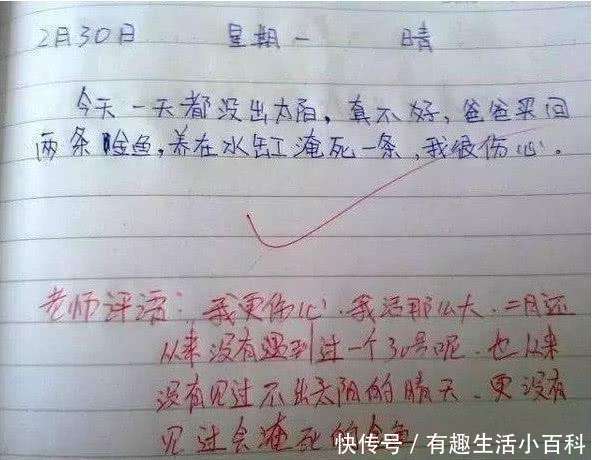 2月30日 星期一 晴
今天一天都没出太阳,真不好,爸爸买回
两条金鱼,养在水缸淹死一条,我很伤心。
老师评语:我更伤心.我活那么大.二月还
从来没有遇到过一个30号呢.也从来
没有见过不出太阳的晴天.更没有
见过会淹死的金鱼
快传号/有趣生活小百科